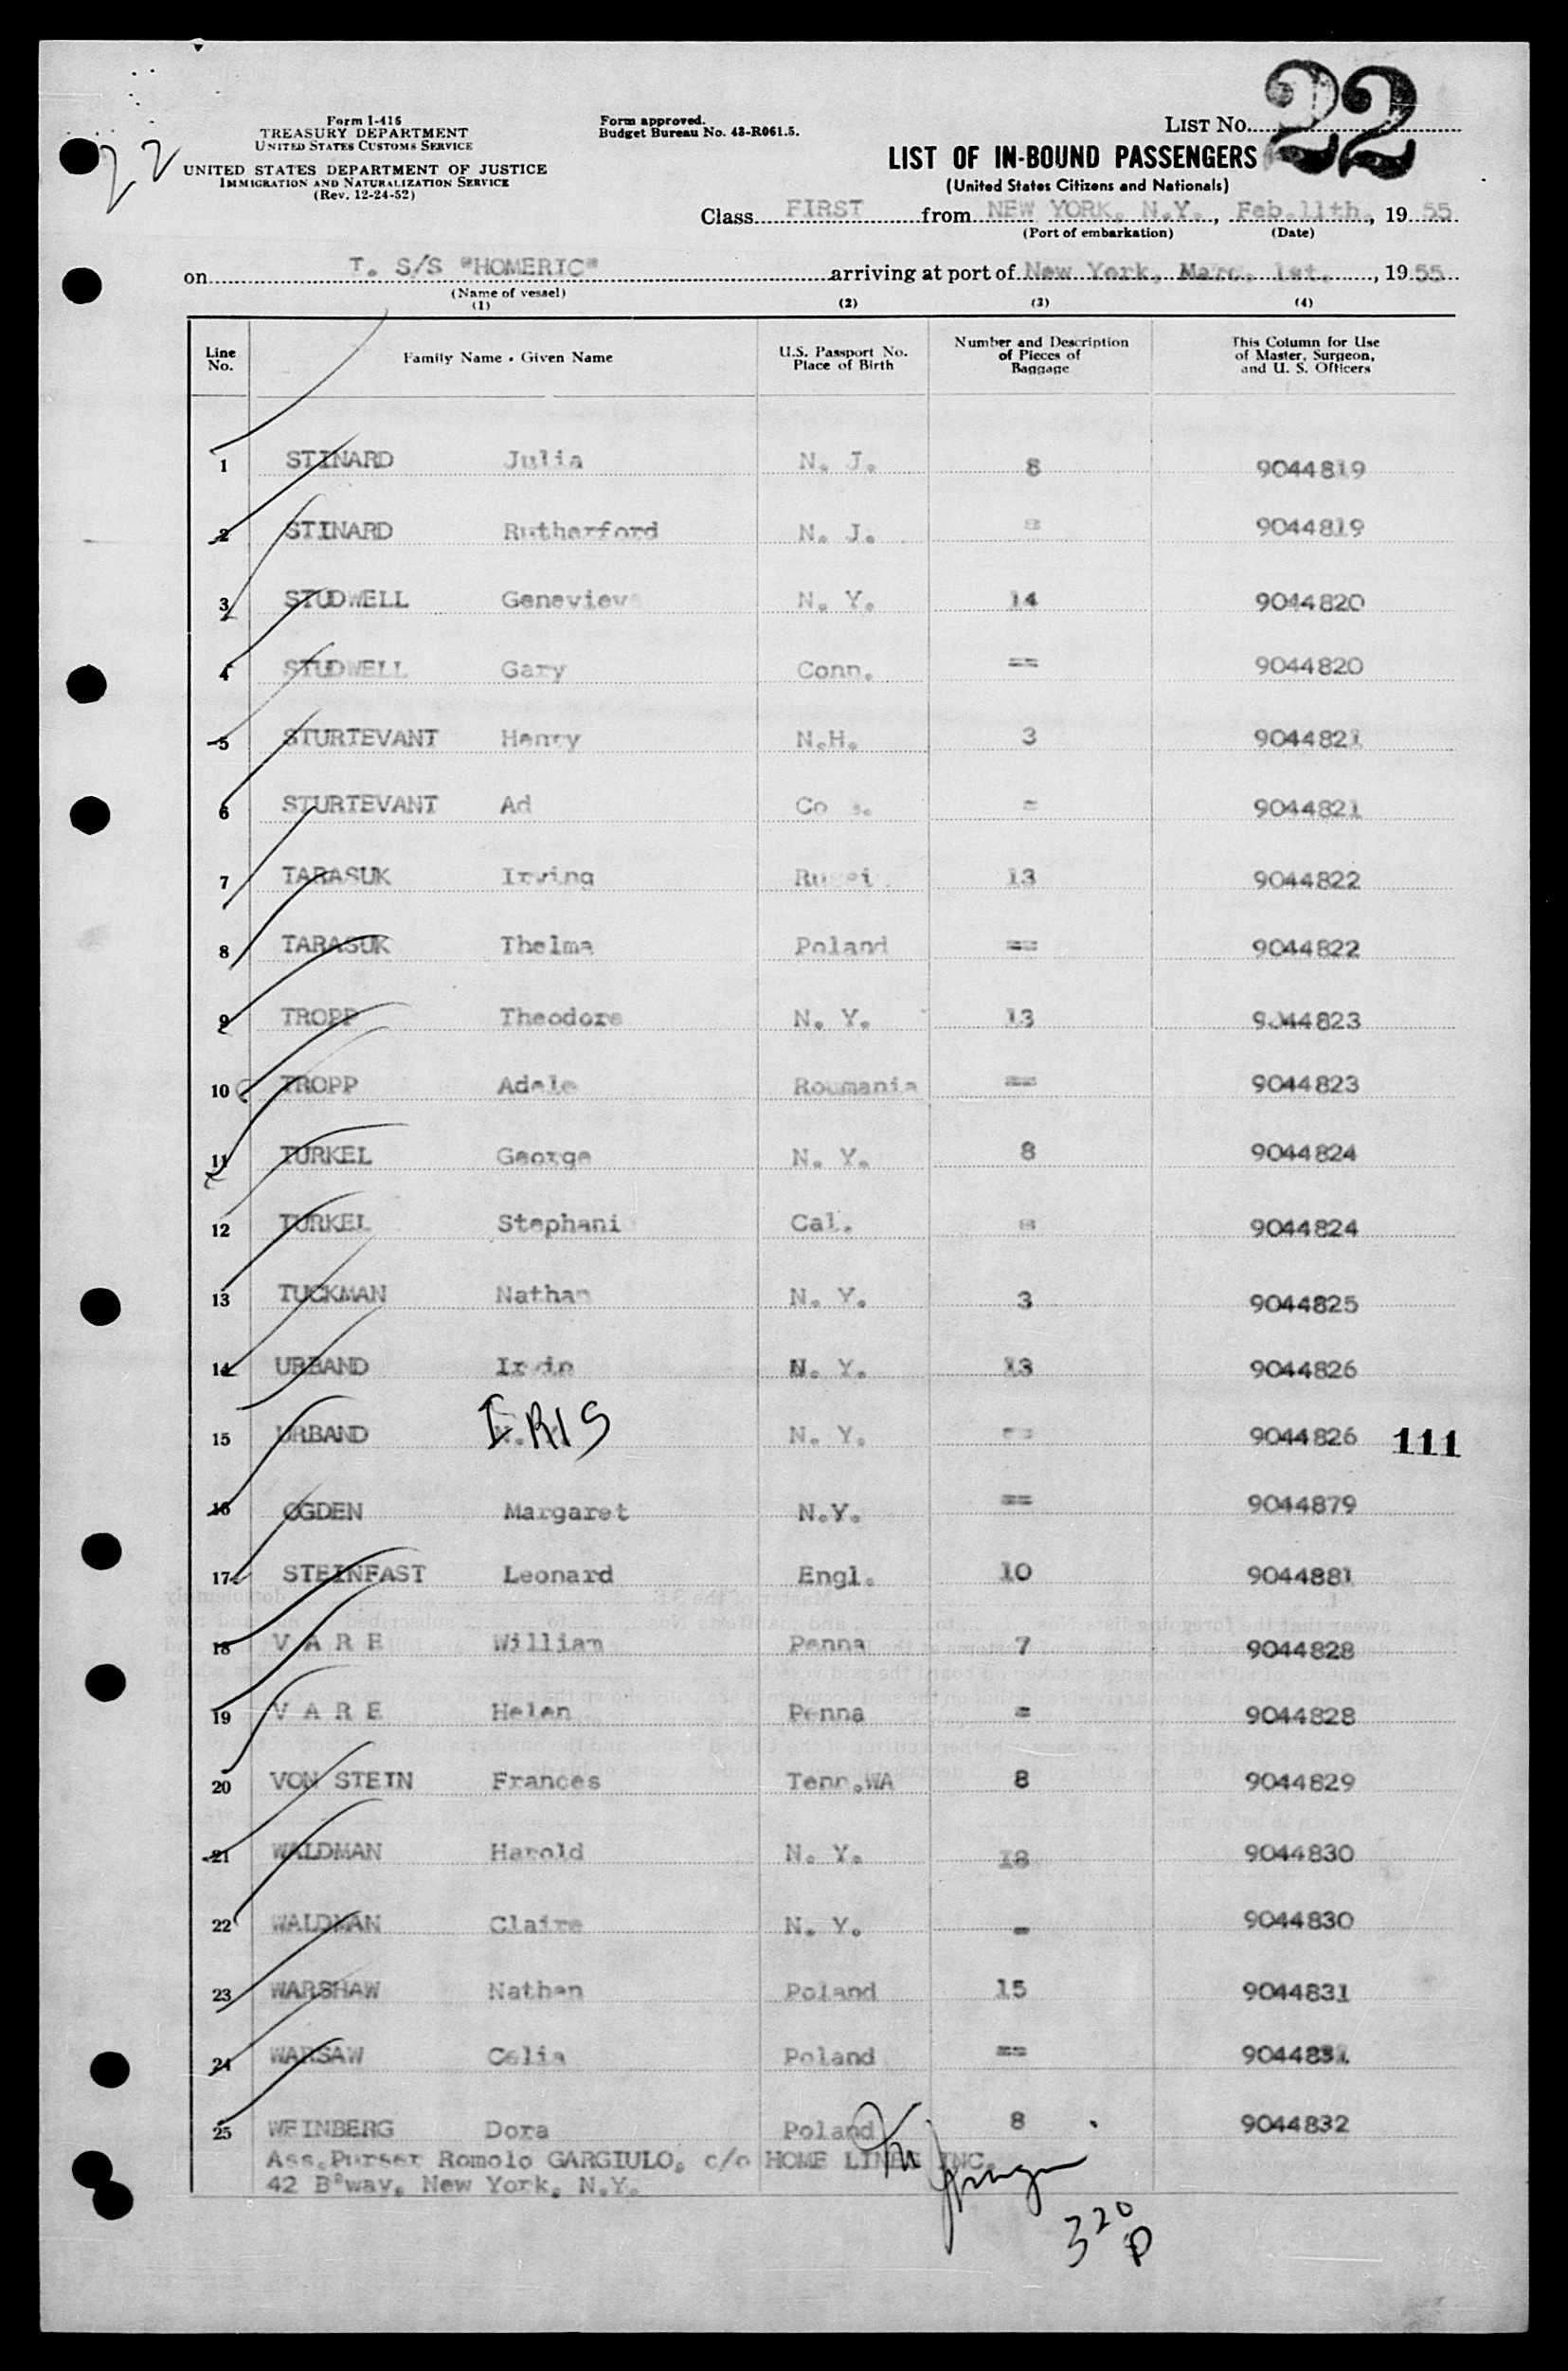 22
Form I-415
TREASURY DEPARTMENT
UNITED STATES CUSTOMS SERVICE
UNITED STATES DEPARTMENT OF JUSTICE
IMMIGRATION AND NATURALIZATION SERVICE
(Rev. 12-24-52)
Form approved.
Budget Bureau No. 43-R061.5.
LIST No. 22
LIST OF IN-BOUND PASSENGERS
(United States Citizens and Nationals)
Class FIRST from NEW YORK, N.Y., Feb.11th, 19 55
(Port of embarkation) (Date)
on T. S/S "HOMERIC" arriving at port of New York, Marc. 1st. , 19 55
(Name of vessel)
(1) (2) (3) (4)
Line No. Family Name • Given Name U.S. Passport No. Place of Birth Number and Description of Pieces of Baggage This Column for Use of Master, Surgeon, and U. S. Officers
1 STINARD Julia N. J. 8 9044819
2 STINARD Rutherford N. J. = 9044819
3 STUDWELL Genevieve N. Y. 14 9044820
4 STUDWELL Gary Conn. == 9044820
5 STURTEVANT Henry N.H. 3 9044821
6 STURTEVANT Ad = 9044821
7 TARASUK Irving 13 9044822
8 TARASUK Thelma Poland == 9044822
9 TROPP Theodore N. Y. 13 9044823
10 TROPP Adele Roumania == 9044823
11 TURKEL George N. Y. 8 9044824
12 TURKEL Stephani Cal. = 9044824
13 TUCKMAN Nathan N. Y. 3 9044825
14 URBAND Irvin N. Y. 13 9044826
15 URBAND IRIS N. Y. == 9044826 111
16 OGDEN Margaret N.Y. == 9044879
17 STEINFAST Leonard Engl. 10 9044881
18 V A R E William Penna 7 9044828
19 V A R E Helen Penna = 9044828
20 VON STEIN Frances Tenn.WA 8 9044829
21 WALDMAN Harold N. Y. 18 9044830
22 WALDMAN Claire N. Y. = 9044830
23 WARSHAW Nathan Poland 15 9044831
24 WARSAW Celia Poland == 9044831
25 WEINBERG Dora Poland 8 9044832
Ass.Purser Romolo GARGIULO, c/o HOME LINES INC.
42 B'way, New York, N.Y.
320
P